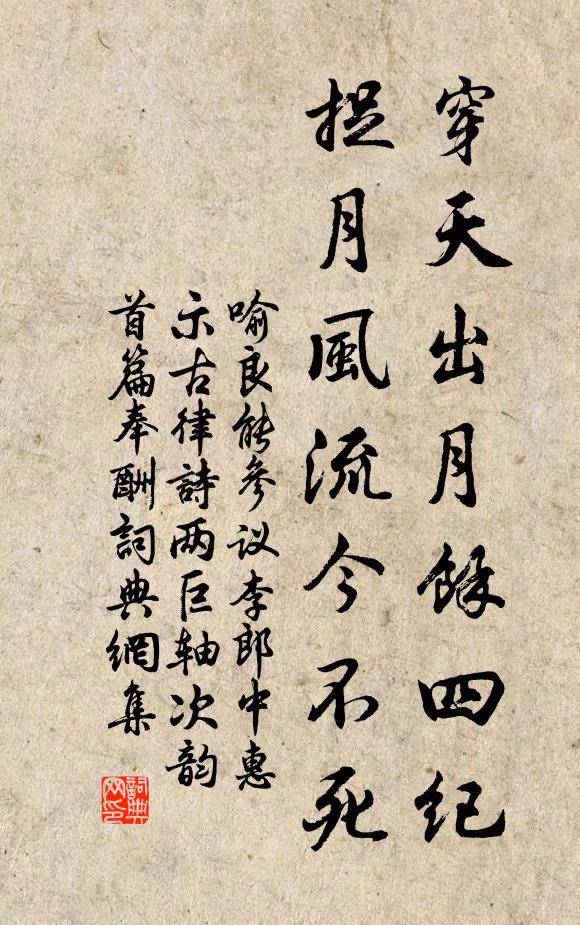 穿天出月餘四纪
捉月風流今不死
喻良能參议李郎中惠
示古律詩两巨轴次韵
首篇奉酬詞典網集
詞典
网印